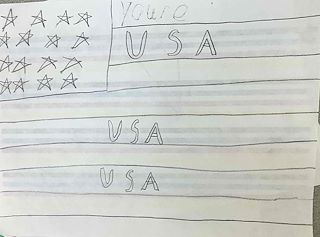 youre
USA
USA
USA